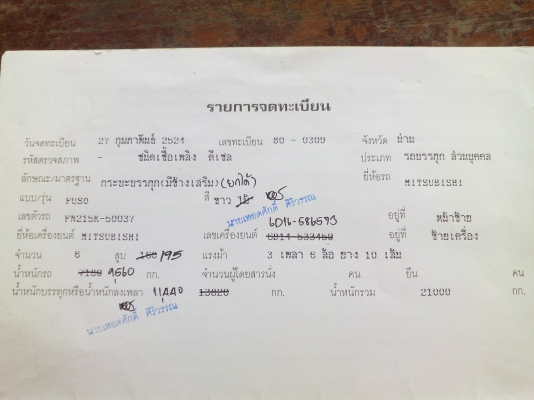 รายการจดทะเบียน
วันจดทะเบียน 27 กุมภาพันธ์ 2524 เลขทะเบียน 80 - 0309 จังหวัด น่าน
รหัสตรวจสภาพ - ชนิดเชื้อเพลิง ดีเซล ประเภท รถบรรทุก ส่วนบุคคล
ลักษณะ/มาตรฐาน กระบะบรรทุก(มีข้างเสริม)(ยกได้) ยี่ห้อรถ MITSUBISHI
แบบ/รุ่น FUSO สี ขาว
นายเทอดศักดิ์ ศิริวรรณ
เลขตัวรถ FN215K-50037 6D16-586593 อยู่ที่ หน้าซ้าย
ยี่ห้อเครื่องยนต์ MITSUBISHI เลขเครื่องยนต์ 6D14-533459 อยู่ที่ ซ้ายเครื่อง
จำนวน 6 สูบ 160 195 แรงม้า 3 เพลา 6 ล้อ ยาง 10 เส้น
น้ำหนักรถ 7180 9,560 กก. จำนวนผู้โดยสารนั่ง คน ยืน คน
น้ำหนักบรรทุกหรือน้ำหนักลงเพลา 11,440 13820 กก. น้ำหนักรวม 21000 กก.
นายเทอดศักดิ์ ศิริวรรณ